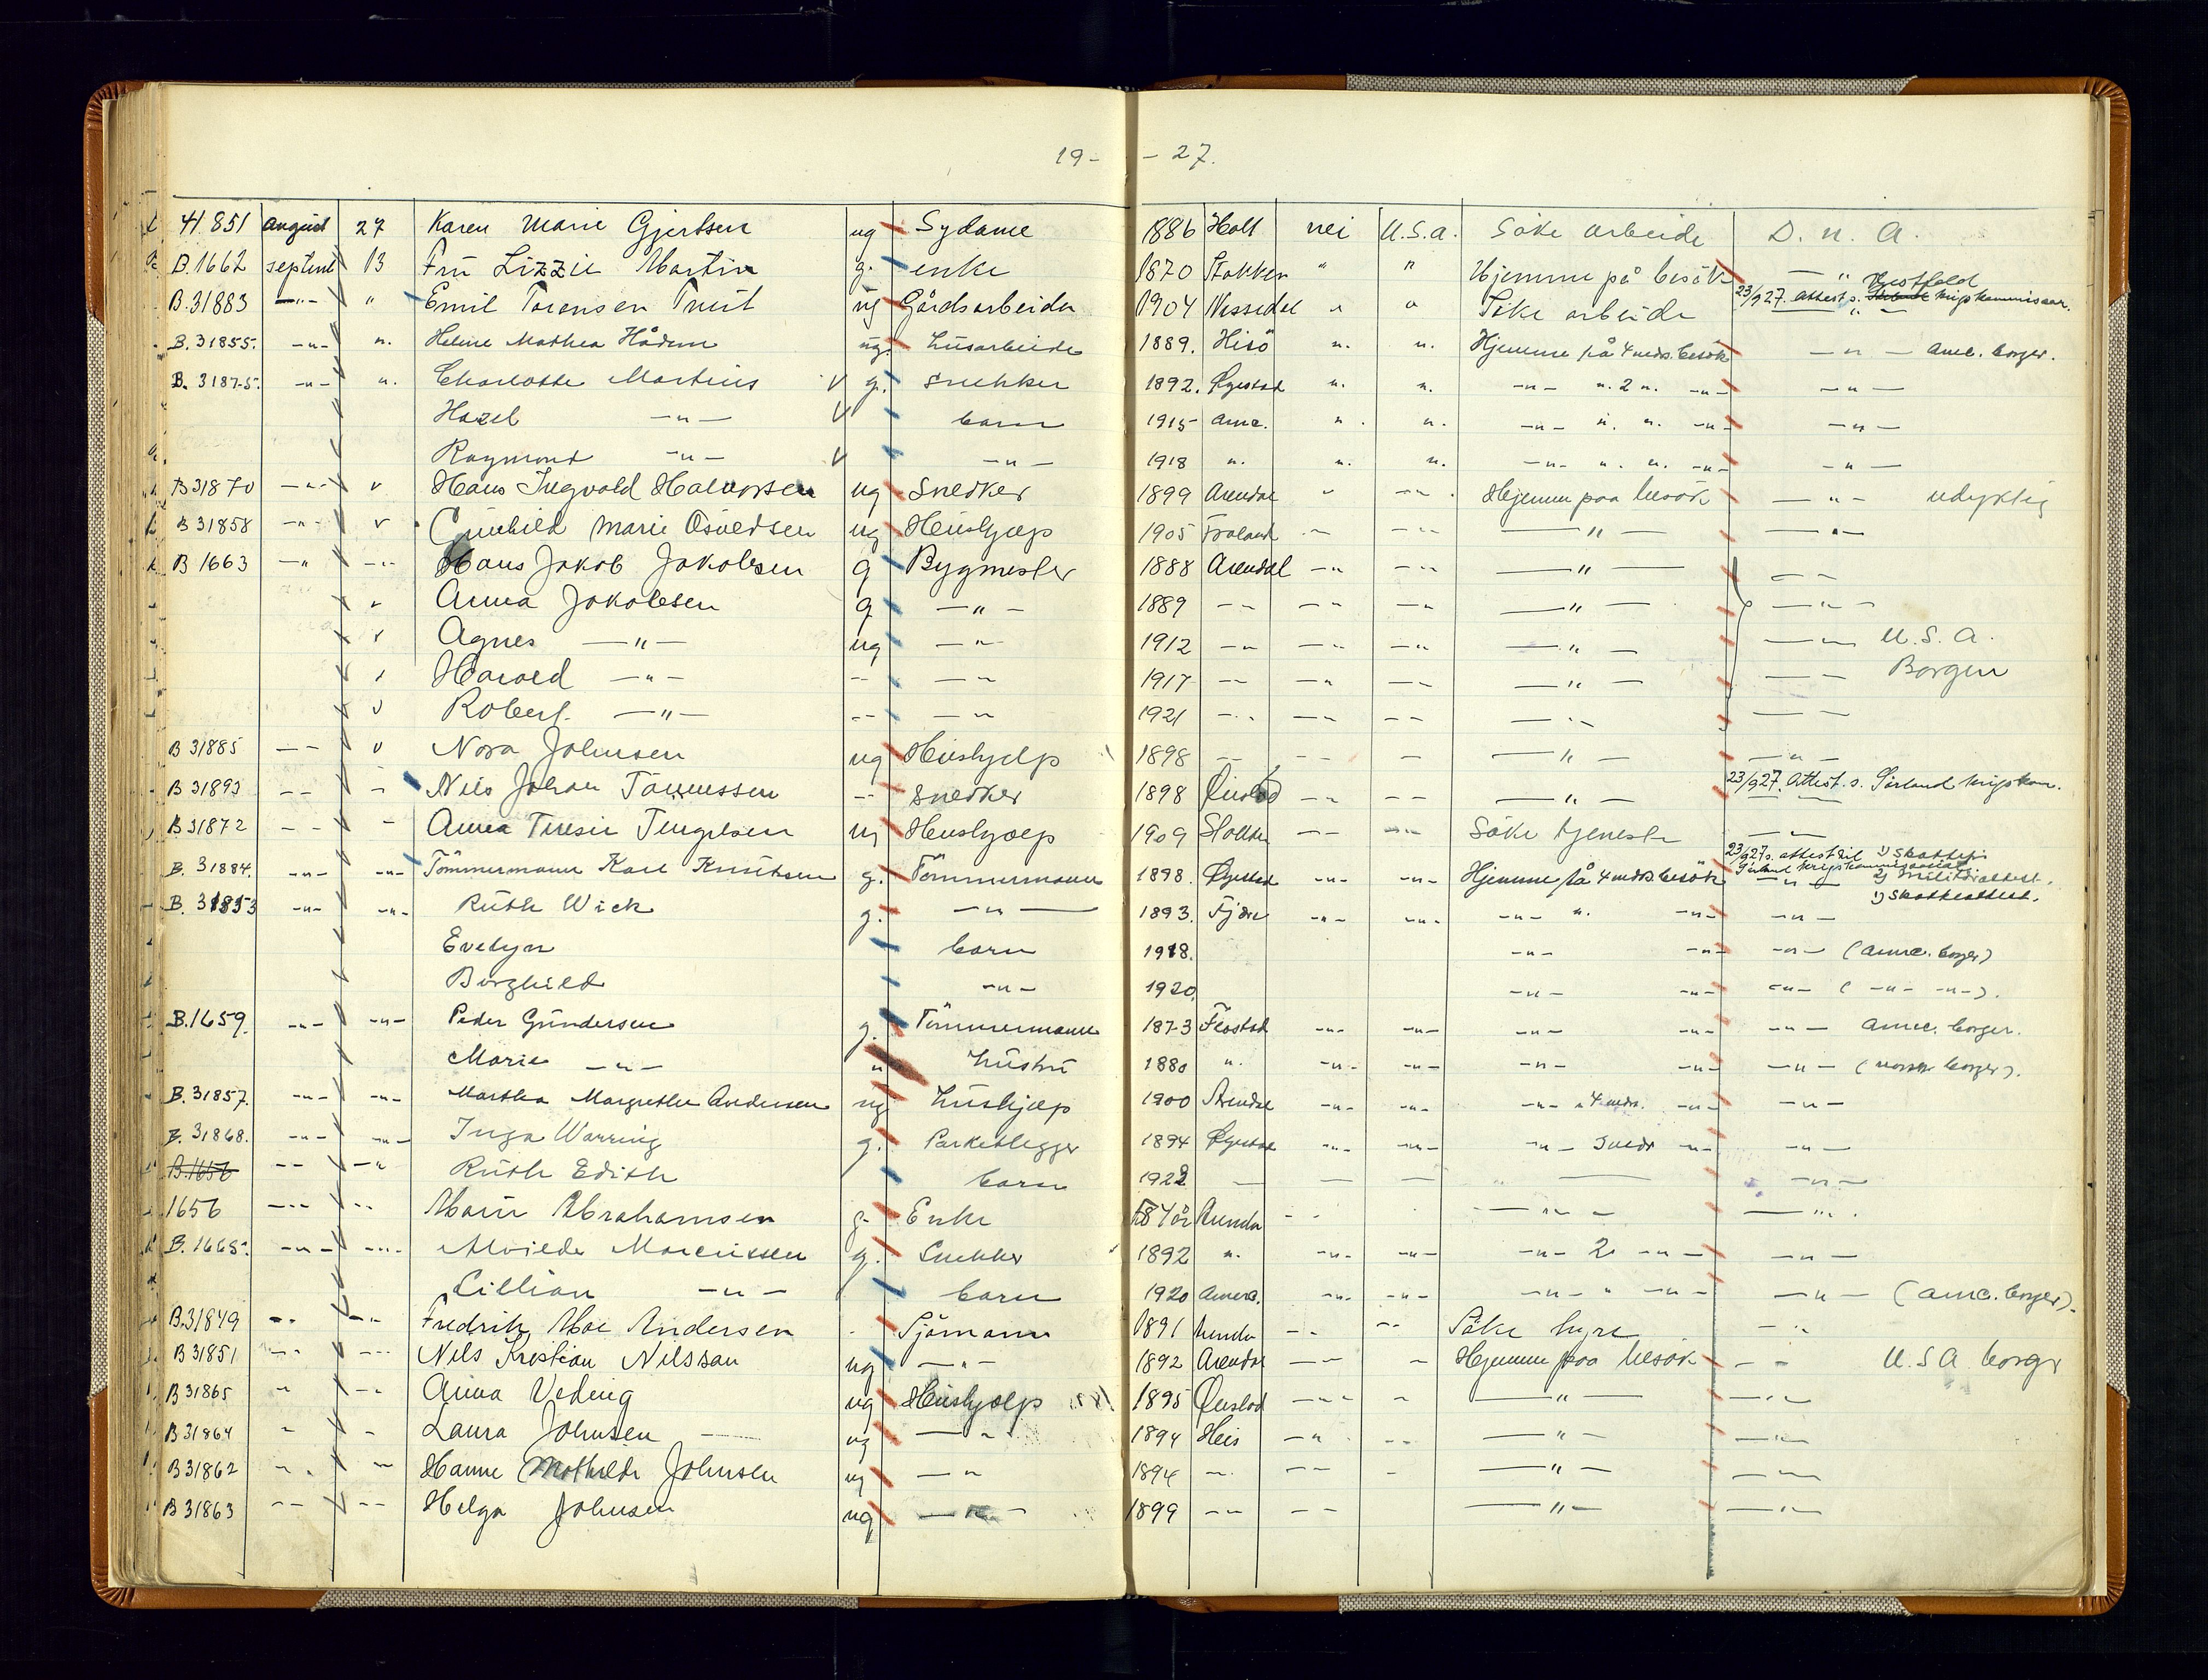 19- - 27.
41.851 August 27 Karen Marie Gjertsen ug Sydame 1886 Holt nei U.S.A. Söke arbeide D. n. A.
B.1662 septemb 13 Fru Lizzie Martin g. enke 1870 Stokken " " Hjemme på besök — " —
B.31883 —"— " Emil Torensen ug Gårdsarbeider 1904 Nissedal " " Söke arbeide 23/9 27. Attest s. Vestfold krigskommissær. — " —
B.31855. —"— ". Helene Mathea Hådem ug. husarbeide 1889. Hisö ". ". Hjemme på 4 mdrs. besök —"— amr. borger.
B.31875. —"— ". Charlotte Martius V g. snekker 1892. Øyestad ". ". —"— ". 2 ". —"— —"—
Hazel —"— V barn 1915 Ame. ". ". —"— ". ". —"— —"—
Raymond —"— V —"— 1918 ". ". ". —"— ". ". —"— —"—
B31870 —"— v Hans Ingvald Halvorsen ug Snedker 1899 Arendal " —"— Hjemme paa besök —"— udyktig
B 31858 —"— v Gunhild Marie Osvedsen ug Hushjælp 1905 Froland —"— —"— —"— —"—
B 1663 —" —"— Hans Jakob Jakobsen g Bygmester 1888 Arendal —"— —"— —"— — —
v Anna Jakobsen g —"— 1889 — — —"— —"— —"— —"—
v Agnes —"— ug —"— 1912 —"— —"— —"— —"— —"— U.S.A.
v Harald —"— -- —"— 1917 — — —"— —"— —"— — — Borger
v Robert —"— -- —"— 1921 —"— —"— — — —"— — —
B 31885 — — v Nora Johnsen ug Hushjelp 1898 — — — —"— —"—
B 31893 — — — Nils Johan Tönnessen -- Snedker 1898 Öiestad — — — — —"— 23/9 27. Attest. s. Sörland krigskom.
B 31872 — — " Anna Teresie Tengelsen ug Hushjælp 1909 — — —"— Söke tjeneste —"—
B. 31884. —"— —"— Tömmermann Karl Knutsen g. Tömmermann 1898. Øyestad —"— —"— Hjemme på 4 mdrs. besök 23/9 27 s. attest til Sörland krigskommissariat —"— 1) Skattefri 2) Militærattest.
B. 31853 —"— —"— Ruth Wick g. —"— 1893. Fjære —"— —"— —"— ". —"— —"— 1) Skatteattest.
Evelyn barn 1918. —"— —"— —"— (amr. borger)
Borghild —"— 1920. —"— —"— —"— ( —"— —"— ).
B.1659. —"— —"— Peder Gundersen g. Tömmermann 1873 Flostad —"— —"— —"— —"— —"— amr. borger.
Marie —"— " hustru 1880 ". —"— —"— —"— —"— —"— (norsk borger).
B. 31857. —"— —"— Martha Margrethe Andersen ug hushjælp 1900 Arendal —"— —"— —"— 4 mdr. —"— —"—
B. 31868. —"— —"— Inga Warring g. Parketlegger 1894 Øyestad —"— —"— —"— 3 mdr —"— —"—
B.1656 — — —" Ruth Edith barn 1922 — — — — —"—
1656 —"— —"— Marie Abrahamsen g. Enke 84 år Arendal —"— —"— —"—
B. 1665. —"— —"— Alvilde Marcussen g. Snekker 1892 ". —"— —"— —"— 2 —"— —"—
Lillian —"— barn 1920 Amera. —"— —"— —"— " —"— —"— (amr. borger).
B.31849 —"— —"— Fredrik Moe Andersen Sjömann 1891 Arendal —"— —"— Söke hyre —"—
B 31851 —"— —"— Nils Kristian Nilssan ug —"— 1892 Arendal — — — Hjemme paa besök — — U.S.A. borger
B 31865 " —"— Anna Veding ug Hushjælp 1895 Öiestad —"— — —"— —"—
B 31864 " — Laura Johnsen ug —"— 1894 Heis —"— — — —"— —"—
B 31862 —"— —"— Hanne Mathilde Johnsen ug —"— 1894 —"— — — — —"— —"—
B 31863 — — — — Helga Johnsen ug —"— 1899 — — — — —"— —"—